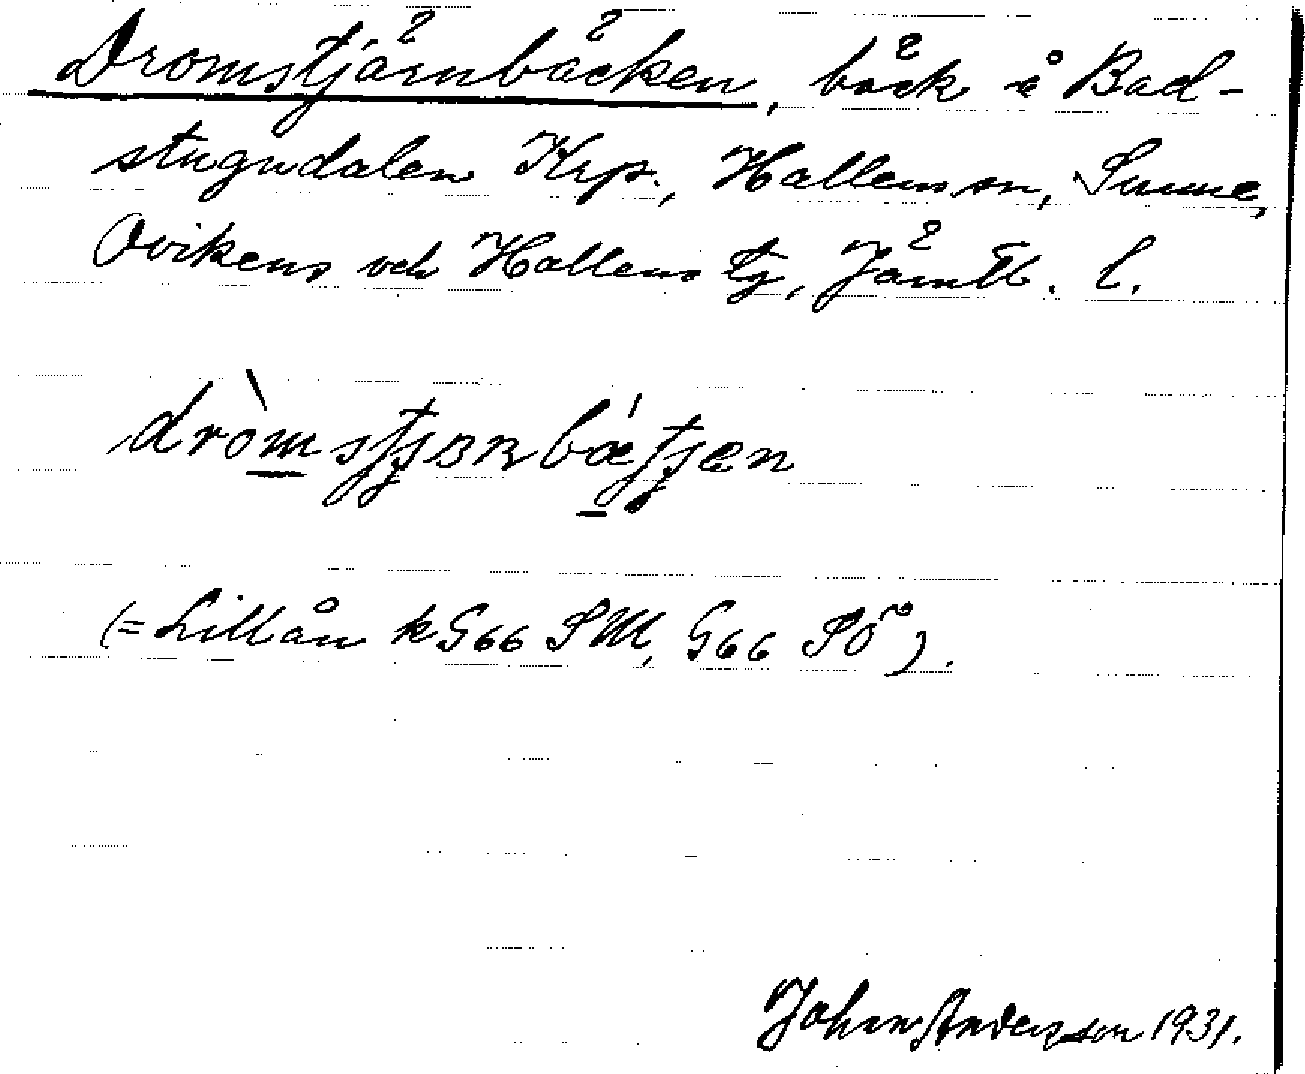 Dromstjärnbäcken, bäck i Bad-
stugudalen Krp., Hallens sn, Sunne,
Ovikens och Hallens tg, Jämtl. l.
dròmstjɜʀnbǽtjen
(= Lillån k G66 SM, G66 SÖ).
Johan Anderson 1931.